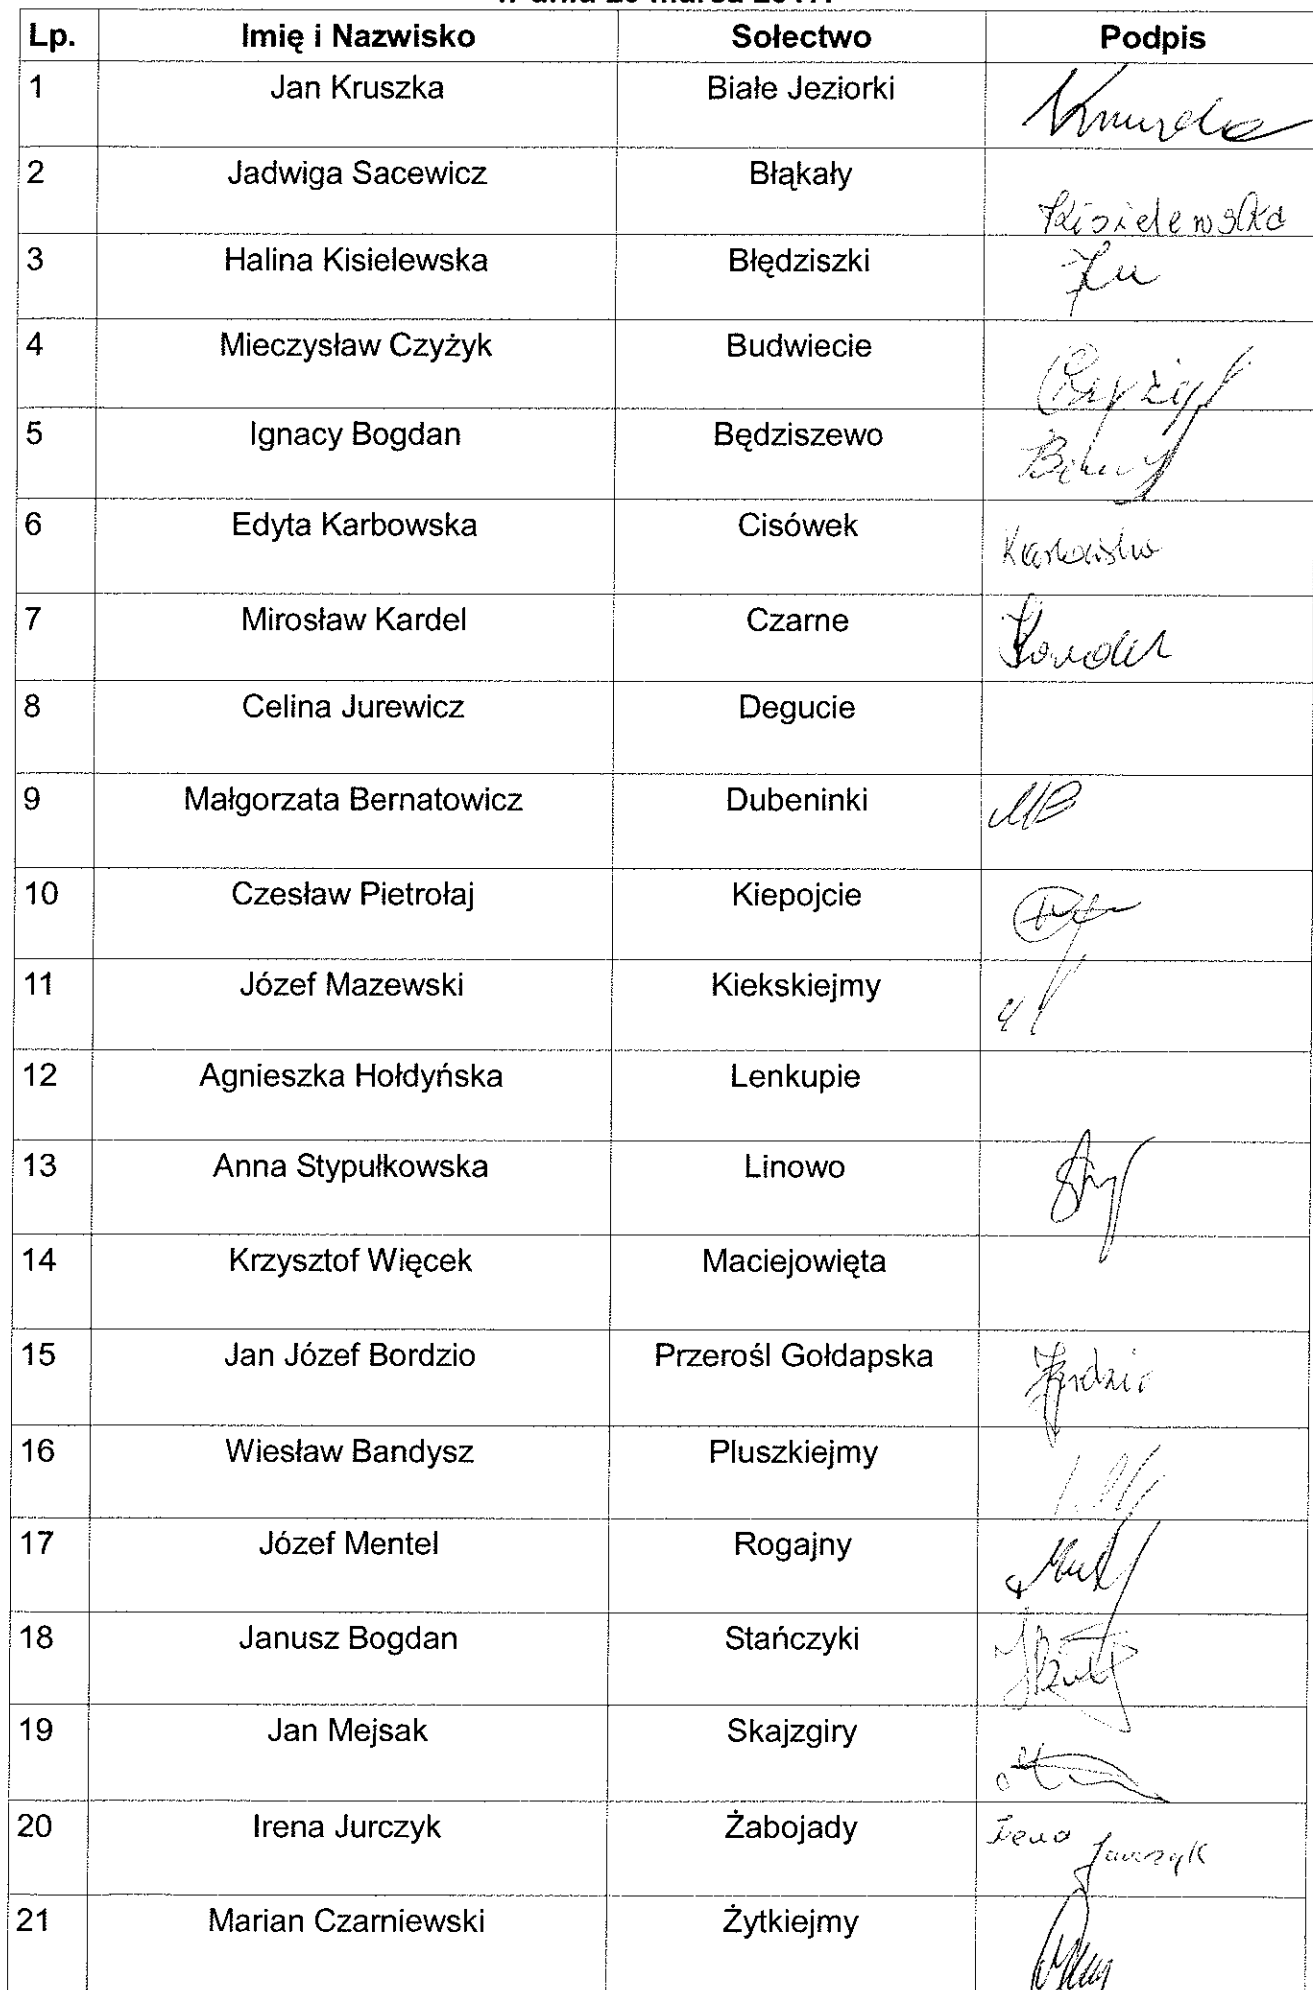 Lp. Imię i Nazwisko Sołectwo Podpis
1 Jan Kruszka Białe Jeziorki
2 Jadwiga Sacewicz Błąkały Kisielewska
3 Halina Kisielewska Błędziszki
4 Mieczysław Czyżyk Budwiecie Czyżyk
5 Ignacy Bogdan Będziszewo
6 Edyta Karbowska Cisówek Karbowska
7 Mirosław Kardel Czarne Kardel
8 Celina Jurewicz Degucie
9 Małgorzata Bernatowicz Dubeninki MB
10 Czesław Pietrołaj Kiepojcie
11 Józef Mazewski Kiekskiejmy
12 Agnieszka Hołdyńska Lenkupie
13 Anna Stypułkowska Linowo
14 Krzysztof Więcek Maciejowięta
15 Jan Józef Bordzio Przerośl Gołdapska
16 Wiesław Bandysz Pluszkiejmy
17 Józef Mentel Rogajny
18 Janusz Bogdan Stańczyki
19 Jan Mejsak Skajzgiry
20 Irena Jurczyk Żabojady Irena Jurczyk
21 Marian Czarniewski Żytkiejmy